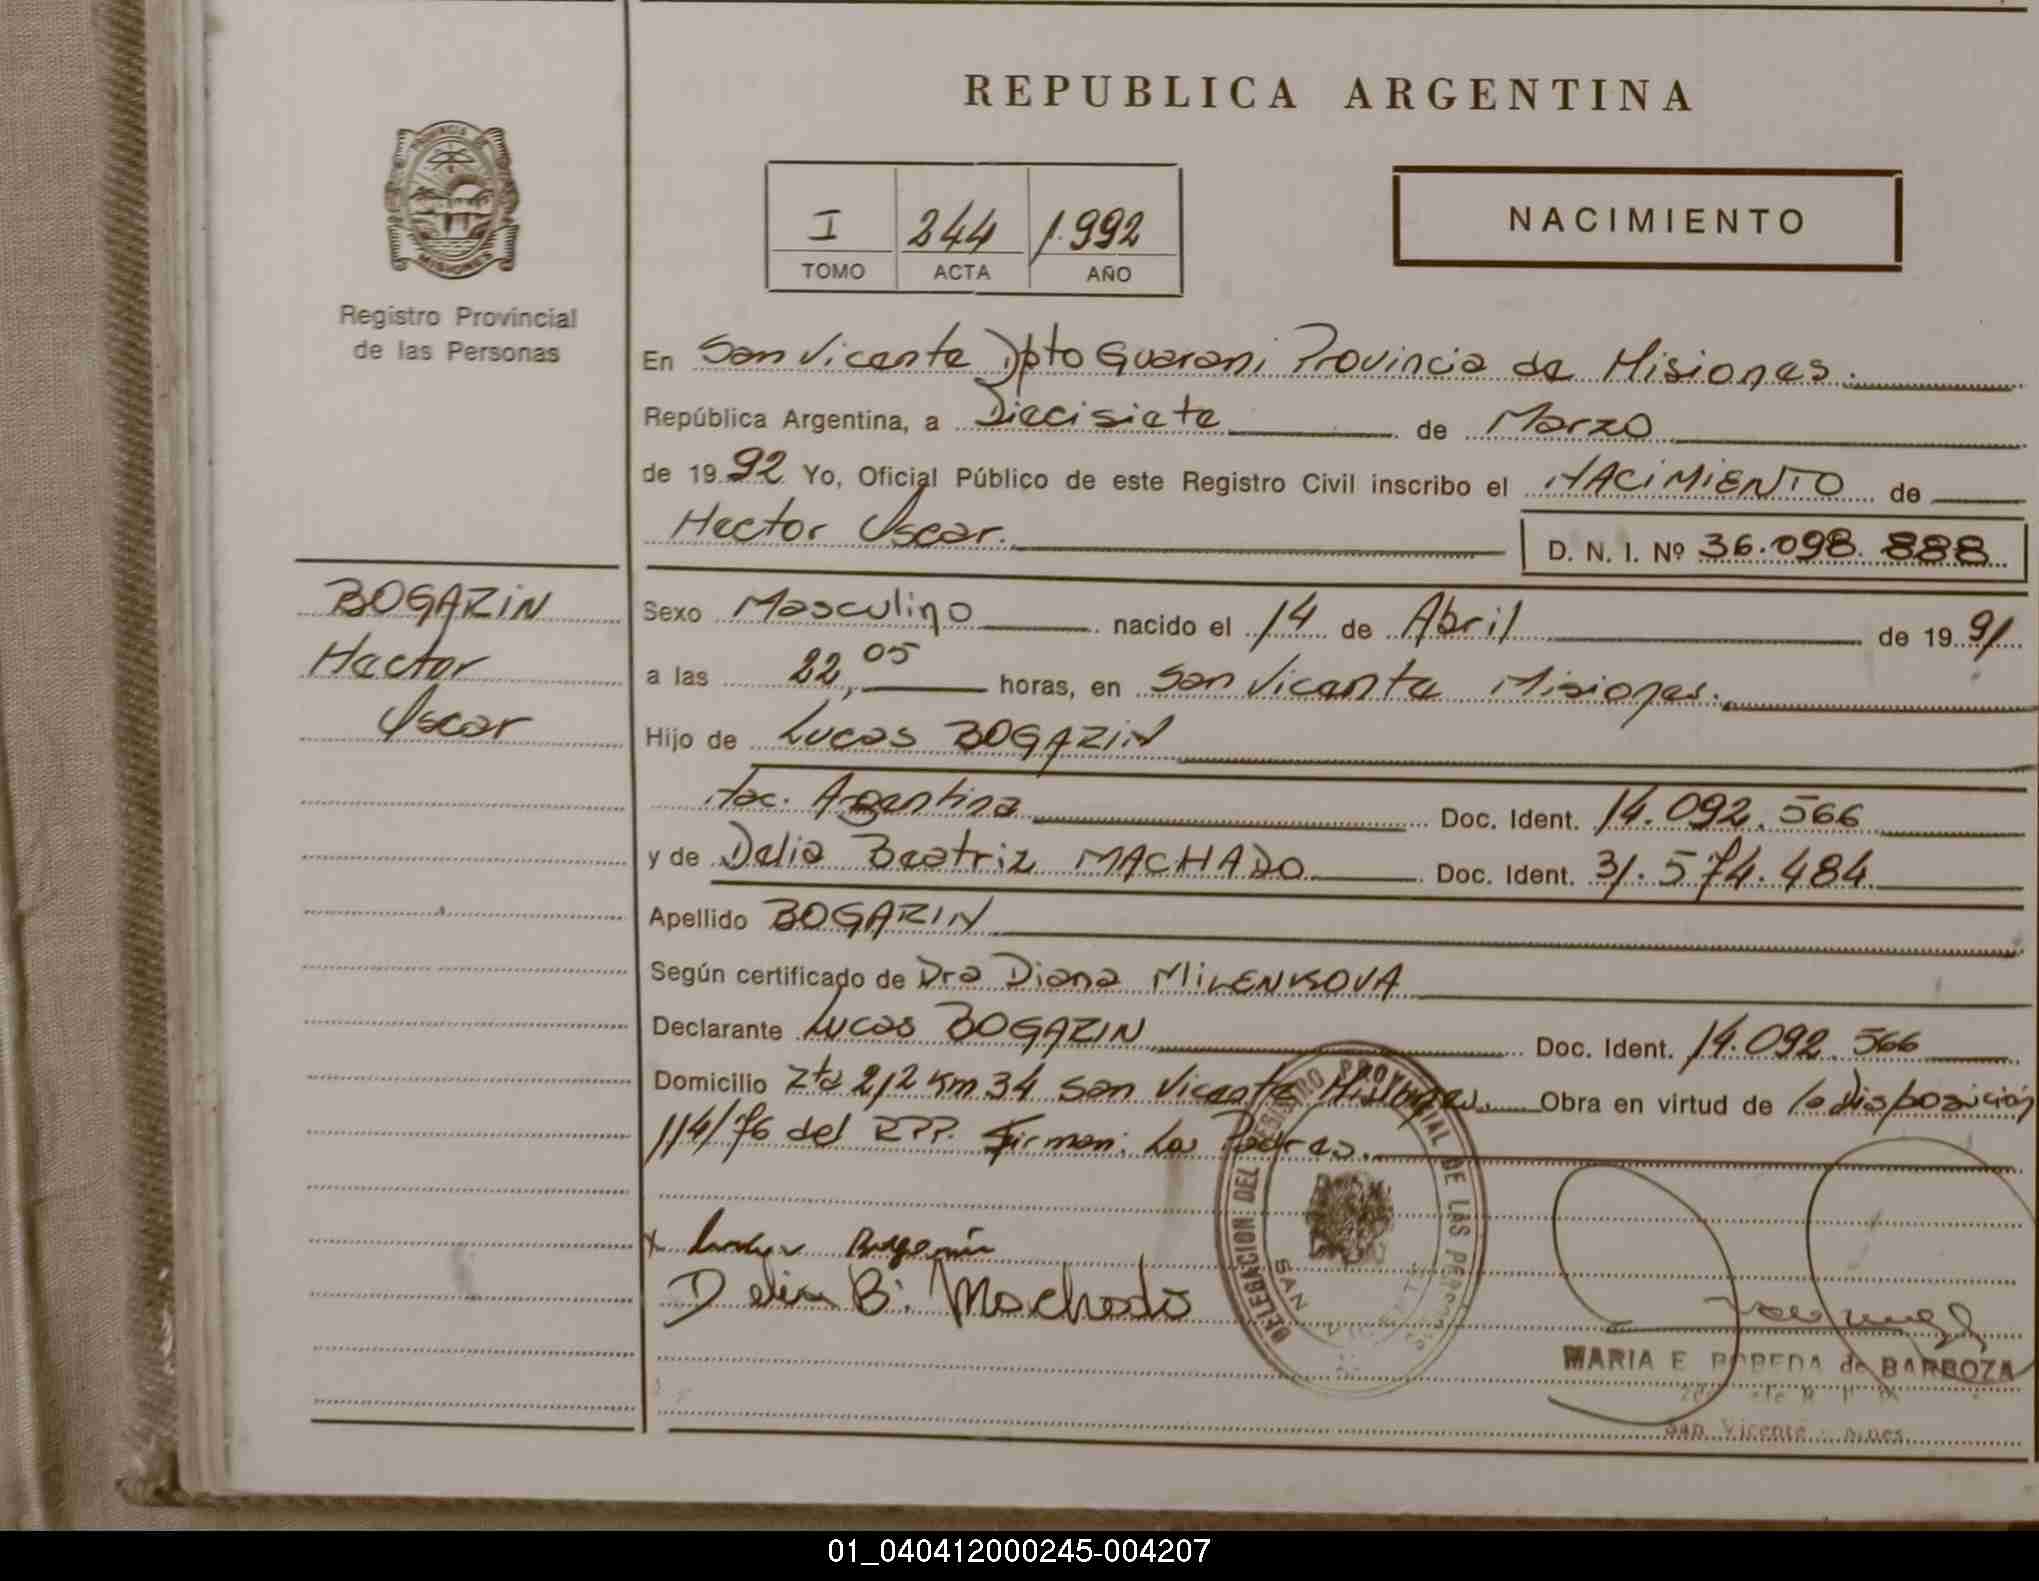 REPUBLICA ARGENTINA
PROVINCIA DE
MISIONES
Registro Provincial
de las Personas
I 244 1.992
TOMO ACTA AÑO
NACIMIENTO
En San Vicente Dpto Guarani Provincia de Misiones.
República Argentina, a Diecisiete de Marzo
de 1992 Yo, Oficial Público de este Registro Civil inscribo el NACIMIENTO de
Hector Oscar. D. N. I. Nº 36.098.888
BOGARIN
Hector
Oscar
Sexo Masculino nacido el 14 de Abril de 1991
a las 22,05 horas, en San Vicente Misiones.
Hijo de Lucas BOGARIN
Nac. Argentina Doc. Ident. 14.092.566
y de Delia Beatriz MACHADO Doc. Ident. 31.574.484
Apellido BOGARIN
Según certificado de Dra Diana MILENKOVA
Declarante Lucas BOGARIN Doc. Ident. 14.092.566
Domicilio Zta 212 Km 34 San Vicente Misiones. Obra en virtud de la Disposición
114/76 del RPP. Firman: Los Padres.
DELEGACION DEL REGISTRO PROVINCIAL DE LAS PERSONAS
SAN VICENTE
Bogarin
Delia B. Machado
MARIA E de BARBOZA
San Vicente
01_040412000245-004207